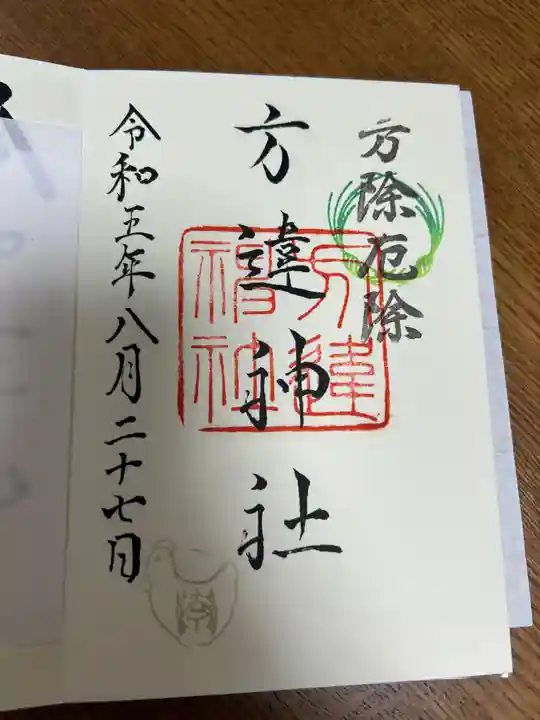 方除厄除
方違神社
方違神社
令和五年八月二十七日